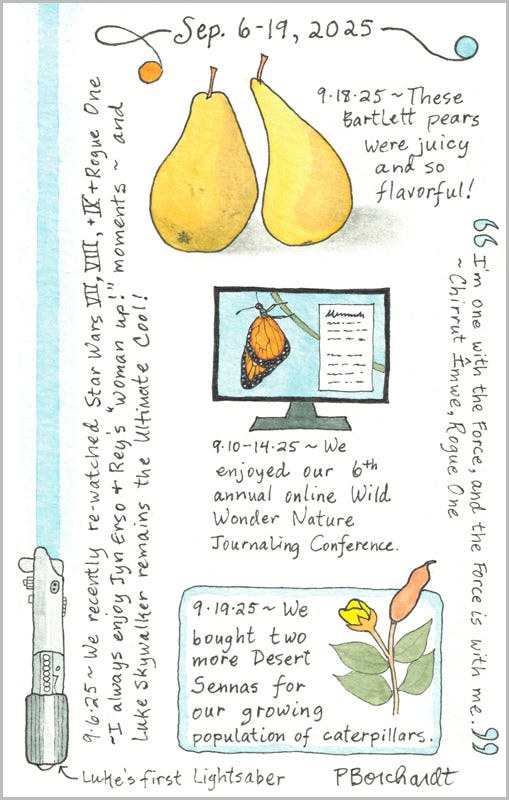 Sep. 6-19, 2025
9.18.25 ~ These
Bartlett pears
were juicy
and so
flavorful!
9.6.25 ~ We recently re-watched Star Wars VII, VIII, + IX + Rogue One
~ I always enjoy Jyn Erso + Rey's "woman up!" moments ~ and
Luke Skywalker remains the Ultimate Cool!
"I'm one with the Force, and the Force is with me."
~ Chirrut Îmwe, Rogue One
9.10-14.25 ~ We
enjoyed our 6th
annual online Wild
Wonder Nature
Journaling Conference.
9.19.25 ~ We
bought two
more Desert
Sennas for
our growing
population of caterpillars.
Luke's first Lightsaber
PBorchardt